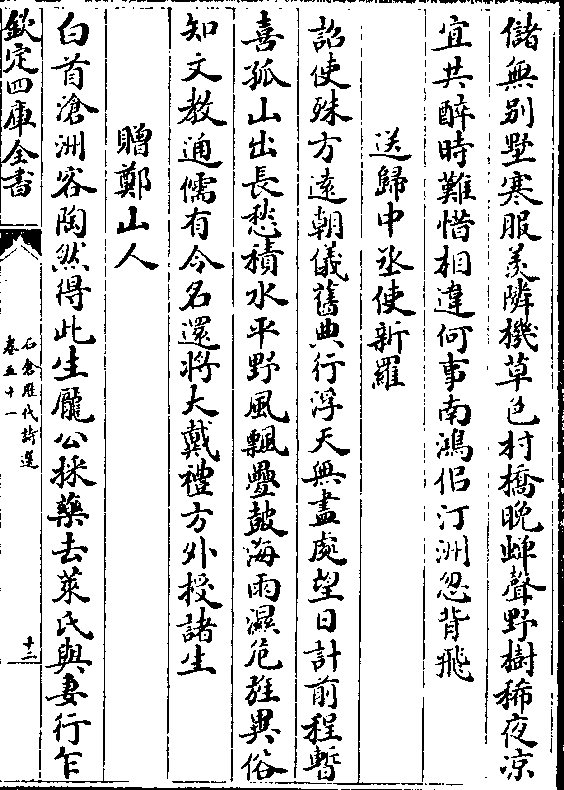 儲無别墅寒服羨隣機草色村橋晚蟬聲野樹稀夜凉
宜共醉時難惜相違何事南鴻侣汀洲忽背飛
送歸中丞使新羅
詔使殊方遠朝儀舊典行浮天無盡處望日計前程暫
喜孤山出長愁積水平野風飄疊鼓海雨濕危旌異俗
知文教通儒有令名還將大戴禮方外授諸生
贈鄭山人
白首滄洲客陶然得此生龐公採藥去萊氏與妻行乍
欽定四庫全書
石倉歷代詩選
卷五十一
十二